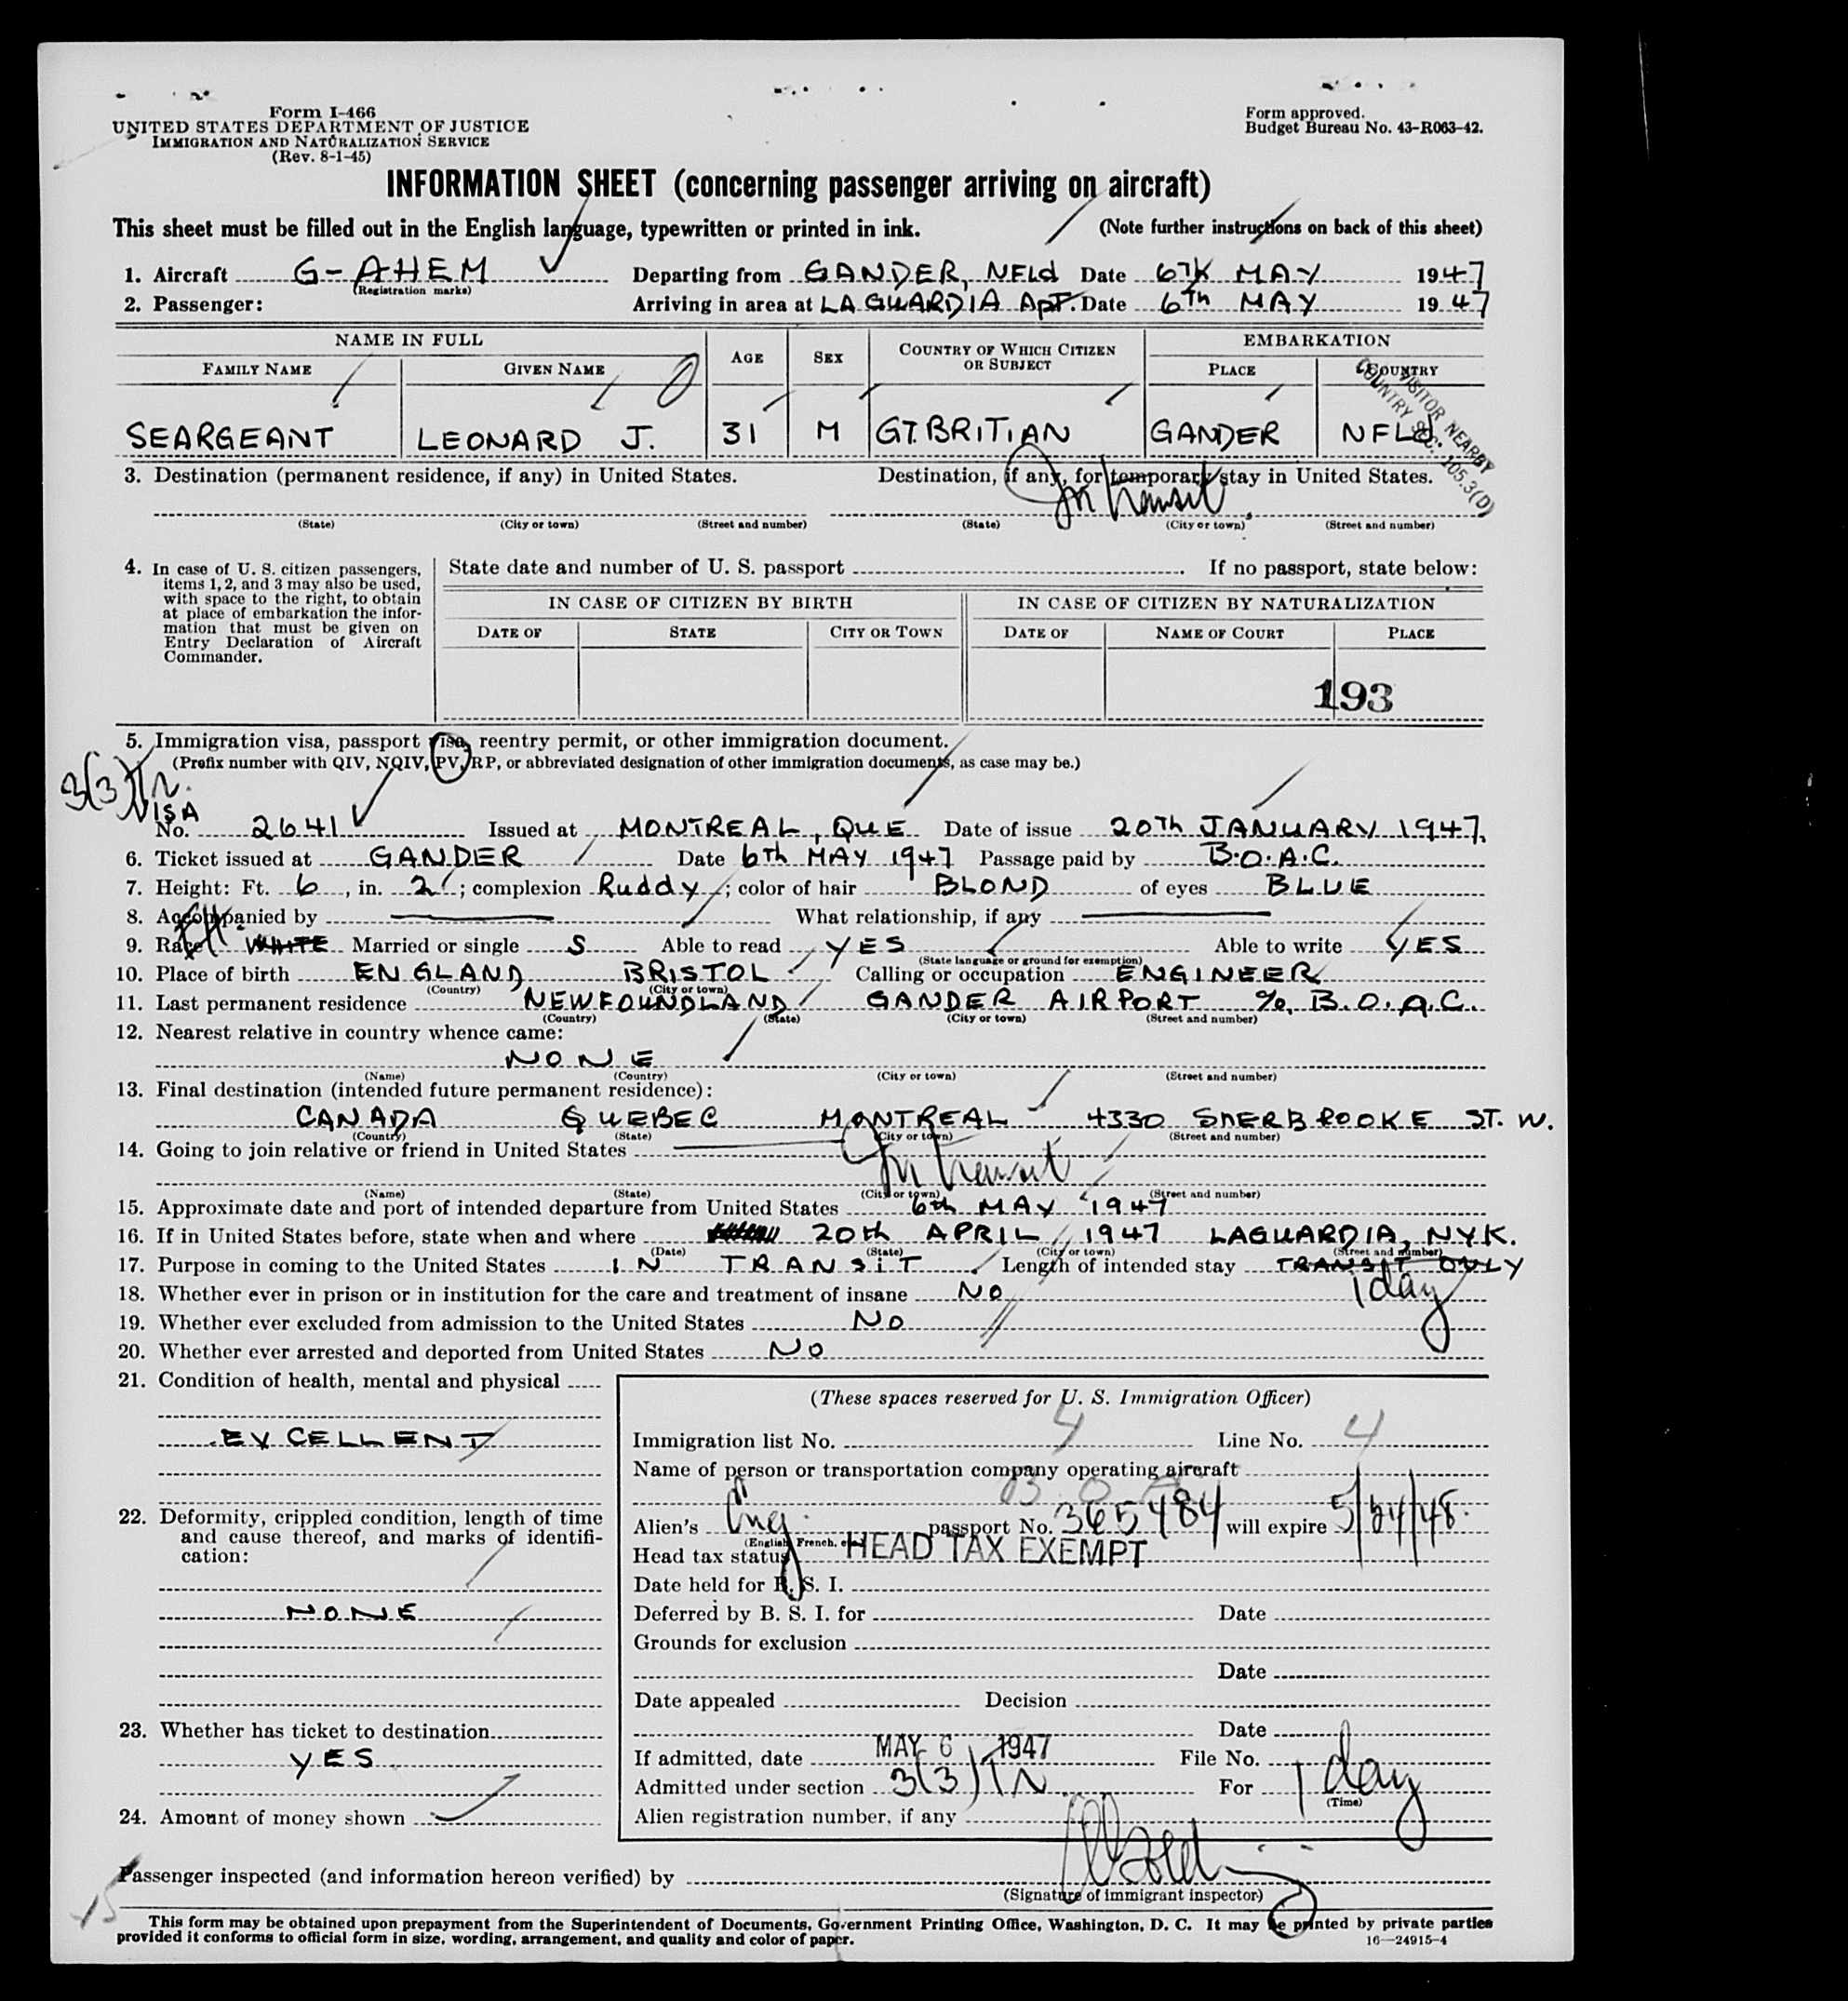 Form I-466
UNITED STATES DEPARTMENT OF JUSTICE
IMMIGRATION AND NATURALIZATION SERVICE
(Rev. 8-1-45)
Form approved.
Budget Bureau No. 43-R063-42.
INFORMATION SHEET (concerning passenger arriving on aircraft)
This sheet must be filled out in the English language, typewritten or printed in ink. (Note further instructions on back of this sheet)
1. Aircraft G-AHEM Departing from GANDER, NFLd Date 6TH MAY 1947
(Registration marks)
2. Passenger: Arriving in area at LA GUARDIA ApT. Date 6Th MAY 1947
NAME IN FULL AGE SEX COUNTRY OF WHICH CITIZEN OR SUBJECT EMBARKATION
FAMILY NAME GIVEN NAME PLACE COUNTRY
SEARGEANT LEONARD J. 31 M GT. BRITIAN GANDER NFLD.
VISITOR NEARBY
COUNTRY SEC. 105.3(D)
3. Destination (permanent residence, if any) in United States. Destination, if any, for temporary stay in United States.
In transit
(State) (City or town) (Street and number) (State) (City or town) (Street and number)
4. In case of U. S. citizen passengers, items 1, 2, and 3 may also be used, with space to the right, to obtain at place of embarkation the information that must be given on Entry Declaration of Aircraft Commander.
State date and number of U. S. passport . If no passport, state below:
IN CASE OF CITIZEN BY BIRTH IN CASE OF CITIZEN BY NATURALIZATION
DATE OF STATE CITY OR TOWN DATE OF NAME OF COURT PLACE
193
5. Immigration visa, passport visa, reentry permit, or other immigration document.
(Prefix number with QIV, NQIV, PV, RP, or abbreviated designation of other immigration documents, as case may be.)
3(3)
VISA
No. 2641 Issued at MONTREAL, QUE Date of issue 20Th JANUARY 1947.
6. Ticket issued at GANDER Date 6th MAY 1947 Passage paid by B.O.A.C.
7. Height: Ft. 6, in. 2; complexion Ruddy; color of hair BLOND of eyes BLUE
8. Accompanied by What relationship, if any
9. Race WHITE Married or single S Able to read YES Able to write YES
(State language or ground for exemption)
10. Place of birth ENGLAND, BRISTOL Calling or occupation ENGINEER
(Country) (City or town)
11. Last permanent residence NEWFOUNDLAND GANDER AIRPORT % B.O.A.C.
(Country) (State) (City or town) (Street and number)
12. Nearest relative in country whence came:
NONE
(Name) (Country) (City or town) (Street and number)
13. Final destination (intended future permanent residence):
CANADA QUEBEC MONTREAL 4330 SHERBROOKE ST. W.
(Country) (State) (City or town) (Street and number)
14. Going to join relative or friend in United States
In transit
(Name) (State) (City or town) (Street and number)
15. Approximate date and port of intended departure from United States 6th MAY 1947
16. If in United States before, state when and where 20th APRIL 1947 LAGUARDIA, NYK.
(Date) (State) (City or town) (Street and number)
17. Purpose in coming to the United States IN TRANSIT Length of intended stay TRANSIT ONLY
1 day
18. Whether ever in prison or in institution for the care and treatment of insane No
19. Whether ever excluded from admission to the United States No
20. Whether ever arrested and deported from United States No
21. Condition of health, mental and physical
EXCELLENT
22. Deformity, crippled condition, length of time and cause thereof, and marks of identification:
NONE
23. Whether has ticket to destination
YES
24. Amount of money shown
(These spaces reserved for U. S. Immigration Officer)
Immigration list No. 4 Line No. 4
Name of person or transportation company operating aircraft
B O A
Alien's Eng. passport No. 365484 will expire 5/24/48.
(English, French, etc.)
Head tax status HEAD TAX EXEMPT
Date held for B. S. I.
Deferred by B. S. I. for Date
Grounds for exclusion
Date
Date appealed Decision
Date
If admitted, date MAY 6 1947 File No.
Admitted under section 3(3) TN For 1 day
(Time)
Alien registration number, if any
Passenger inspected (and information hereon verified) by
(Signature of immigrant inspector)
This form may be obtained upon prepayment from the Superintendent of Documents, Government Printing Office, Washington, D. C. It may be printed by private parties
provided it conforms to official form in size, wording, arrangement, and quality and color of paper. 16—24915-4